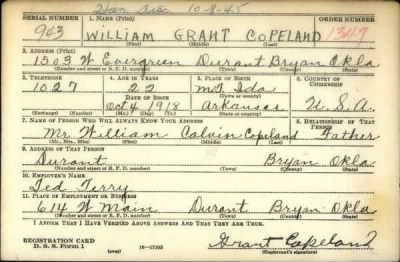 Han Ava 10-8-45
SERIAL NUMBER 1. NAME (Print) ORDER NUMBER
943 WILLIAM GRANT COPELAND 1347
(First) (Middle) (Last)
2. ADDRESS (Print)
1503 W Evergreen Durant Bryan Okla
(Number and street or R. F. D. number) (Town) (County) (State)
3. TELEPHONE 4. AGE IN YEARS 5. PLACE OF BIRTH 6. COUNTRY OF CITIZENSHIP
1027 22 Mt Ida
DATE OF BIRTH (Town or county)
Oct 4 1918 Arkansas U.S.A.
(Exchange) (Number) (Mo.) (Day) (Yr.) (State or country)
7. NAME OF PERSON WHO WILL ALWAYS KNOW YOUR ADDRESS 8. RELATIONSHIP OF THAT PERSON
Mr William Calvin Copeland Father
(Mr., Mrs., Miss) (First) (Middle) (Last)
9. ADDRESS OF THAT PERSON
Durant Bryan Okla
(Number and street or R. F. D. number) (Town) (County) (State)
10. EMPLOYER'S NAME
Ted Terry
11. PLACE OF EMPLOYMENT OR BUSINESS
614 W Main Durant Bryan Okla
(Number and street or R. F. D. number) (Town) (County) (State)
I AFFIRM THAT I HAVE VERIFIED ABOVE ANSWERS AND THAT THEY ARE TRUE.
REGISTRATION CARD
D. S. S. Form 1 (over) 16-17105 Grant Copeland
(Registrant's signature)